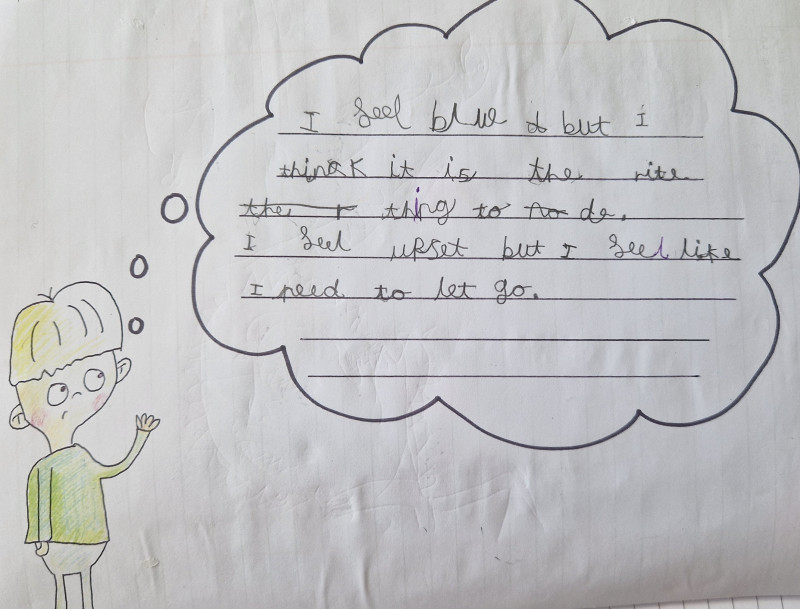 I feel blue but I
think it is the rite
thing to do.
I feel upset but I feel like
I need to let go.